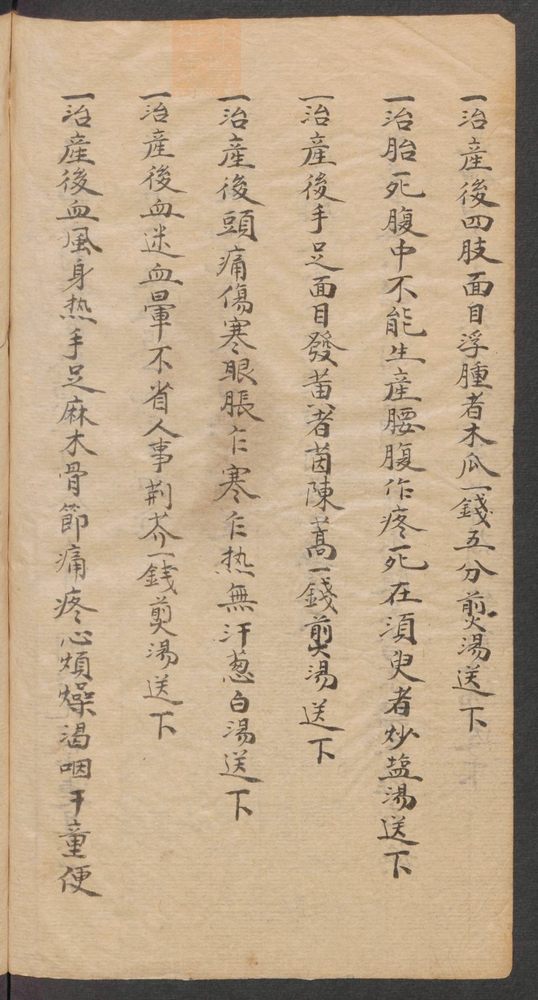 一治産後四肢面目浮腫者木瓜一錢五分煎湯送下
一治胎死腹中不能生産腰腹作疼死在須臾者炒塩湯送下
一治産後手足面目發黄者茵陳蒿一錢煎湯送下
一治産後頭痛傷寒眼脹乍寒乍热無汗葱白湯送下
一治産後血迷血暈不省人事荆芥一錢煎湯送下
一治産後血風身热手足麻木骨節痛疼心煩燥渴咽干童便